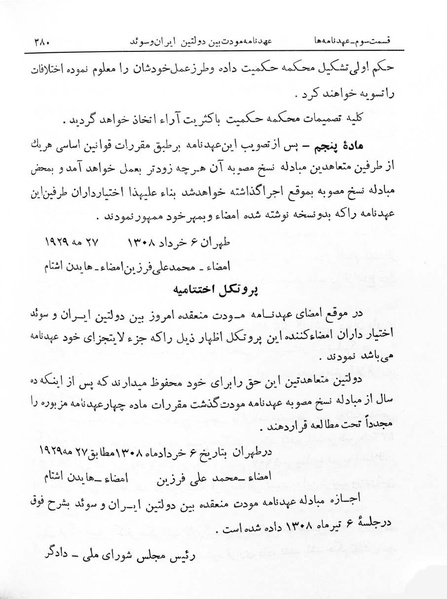 قسمت سوم ـ عهدنامه‌ها عهدنامه مودت بین دولتین ایران و سوئد ۳۸۰
حکم اولی تشکیل محکمه حکمیت داده و طرز عمل خودشان را معلوم نموده اختلافات
را تسویه خواهند کرد .
کلیه تصمیمات محکمه حکمیت باکثریت آراء اتخاذ خواهد گردید .
مادهٔ پنجم – پس از تصویب این عهدنامه برطبق مقررات قوانین اساسی هریك
از طرفین متعاهدین مبادله نسخ مصوبه آن هرچه زودتر بعمل خواهد آمد و بمحض
مبادله نسخ مصوبه بموقع اجرا گذاشته خواهد شد بناء علیهذا اختیارداران طرفین این
عهدنامه را که بدو نسخه نوشته شده امضاء و بمهر خود ممهور نمودند .
طهران ۶ خرداد ۱۳۰۸ ۲۷ مه ۱۹۲۹
امضاء ـ محمدعلی فرزین امضاء ـ هایدن اشتام
پروتکل اختتامیه
در موقع امضای عهدنامه مودت منعقده امروز بین دولتین ایران و سوئد
اختیار داران امضاء کننده این پروتکل اظهار ذیل را که جزء لایتجزای خود عهدنامه
می‌باشد نمودند .
دولتین متعاهدتین این حق را برای خود محفوظ میدارند که پس از اینکه ده
سال از مبادله نسخ مصوبه عهدنامه مودت گذشت مقررات ماده چهار عهدنامه مزبوره را
مجدداً تحت مطالعه قراردهند .
در طهران بتاریخ ۶ خرداد ماه ۱۳۰۸ مطابق ۲۷ مه ۱۹۲۹
امضاء ـ محمد علی فرزین امضاء ـ هایدن اشتام
اجازه مبادله عهدنامه مودت منعقده بین دولتین ایران و سوئد بشرح فوق
در جلسهٔ ۶ تیر ماه ۱۳۰۸ داده شده است .
رئیس مجلس شورای ملی ـ دادگر